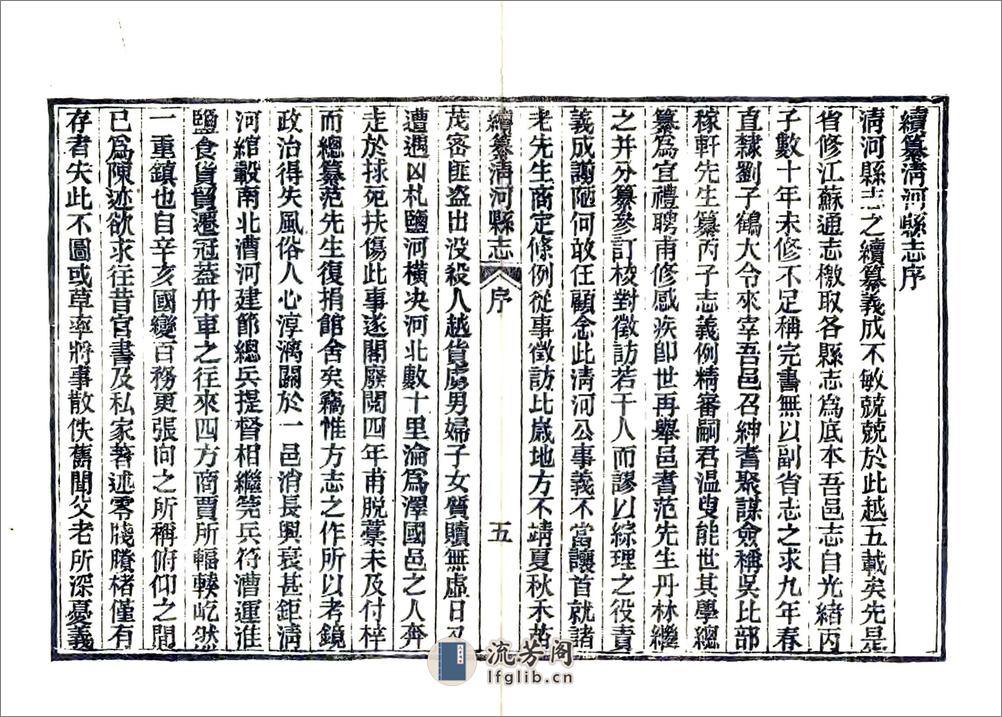 續纂淸河縣志序
淸河縣志之續纂義成不敏兢兢於此越五載矣先是
省修江蘇通志檄取各縣志爲底本吾邑志自光緒丙
子數十年未修不足稱完書無以副省志之求九年春
直隸劉子鶴大令來宰吾邑召紳耆聚謀僉稱吳比部
稼軒先生纂丙子志義例精審嗣君溫叟能世其學總
纂爲宜禮聘甫修感疾卽世再舉邑耆范先生丹林繼
之并分纂參訂校對徵訪若干人而謬以綜理之役責
義成謭陋何敢任顧念此淸河公事義不當讓首就諸
老先生商定條例從事徵訪比歲地方不靖夏秋禾黍
續纂淸河縣志 序 五
茂密匪盜出沒殺人越貨虜男婦子女質贖無虛日又
遭遇凶札鹽河橫决河北數十里淪爲澤國邑之人奔
走於捄死扶傷此事遂閣廢閱四年甫脫藁未及付梓
而總纂范先生復捐館舍矣竊惟方志之作所以考鏡
政治得失風俗人心淳漓關於一邑消長興衰甚鉅淸
河綰轂南北漕河建節總兵提督相繼筦兵符漕運淮
鹽食貨貿遷冠蓋舟車之往來四方商賈所輻輳屹然
一重鎮也自辛亥國變百務更張向之所稱俯仰之間
已爲陳迹欲求往昔官書及私家著述零牋賸楮僅有
存者失此不圖或草率將事散佚舊聞父老所深憂義
流芳阁
lfglib.cn